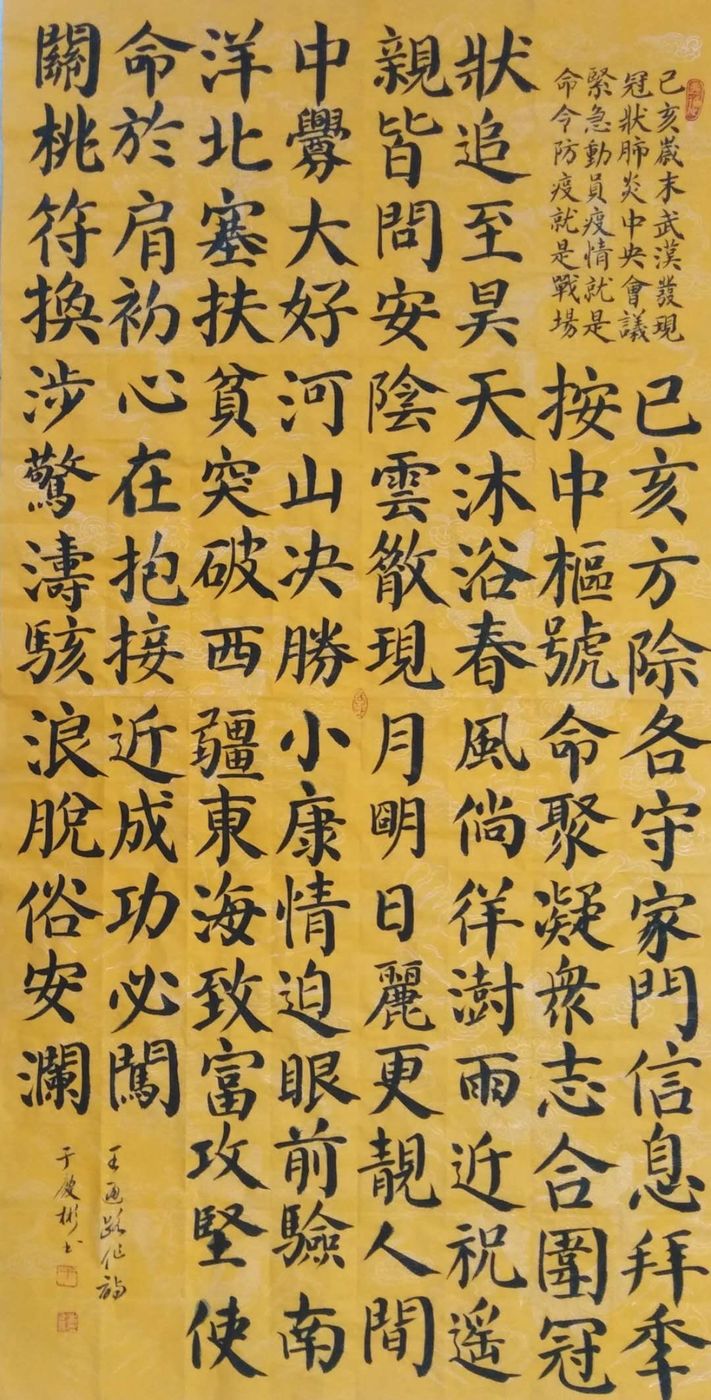 己亥歲末武漢發現
冠狀肺炎中央會議
緊急動員疫情就是
命令防疫就是戰場
己亥方除各守家門信息拜季
按中樞號命聚凝衆志合圍冠
狀追至昊天沐浴春風倘徉澍雨近祝遥
親皆問安陰雲散現月明日麗更靚人間
中大好河山决勝小康情迫眼前驗南
洋北塞扶貧突破西疆東海致富攻堅使
命於肩初心在抱接近成功必闖
關桃符换涉驚濤駭浪脫俗安瀾
王通作詞
于慶彬书